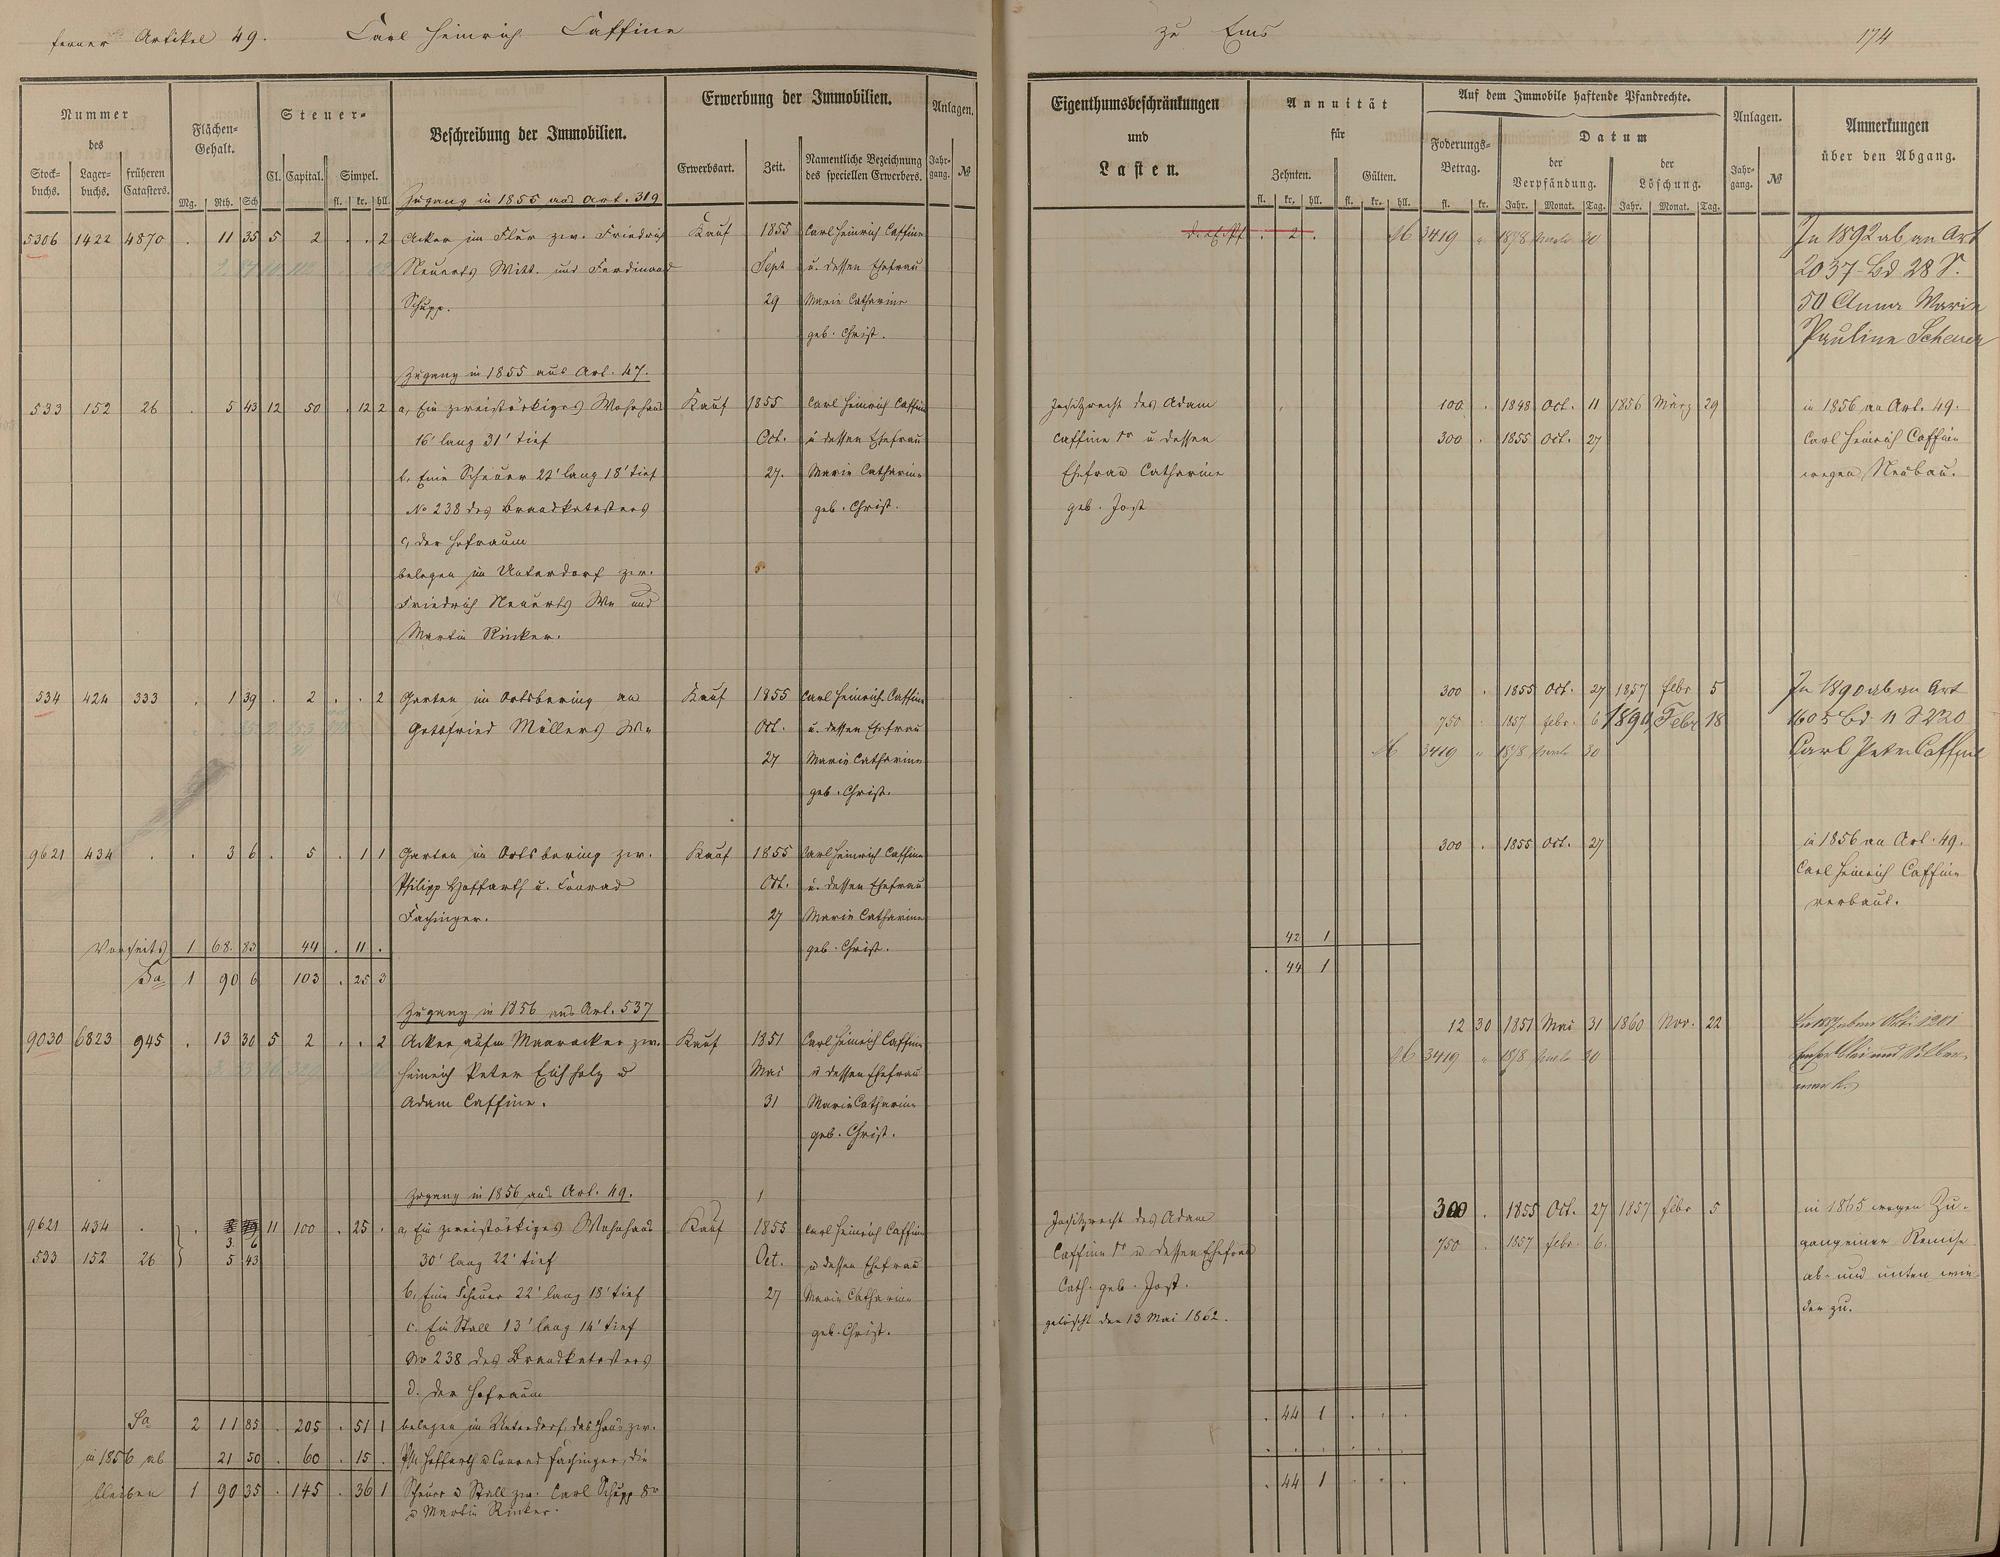 ferner Artikel 49. Carl Heinrich Caffine
zu Ems
174
Nummer
des
Stock-
buchs.
Lager-
buchs.
früheren
Catasters.
Flächen-
Gehalt.
Mg. Rth. Sch
Steuer-
Cl. Capital. Simpel.
fl. kr. hll.
Beschreibung der Immobilien.
Erwerbung der Immobilien.
Erwerbsart. Zeit. Namentliche Bezeichnung
des speciellen Erwerbers.
Anlagen.
Jahr-
gang. №
Eigenthumsbeschränkungen
und
Lasten.
Annuität
für
Zehnten. Gülten.
fl. kr. hll. fl. kr. hll.
Auf dem Immobile haftende Pfandrechte.
Foderungs-
Betrag.
fl. kr.
Datum
der
Verpfändung.
der
Löschung.
Jahr. Monat. Tag. Jahr. Monat. Tag.
Anlagen.
Jahr-
gang. №
Anmerkungen
über den Abgang.
Zugang in 1855 aus Art. 319
5306 1422 4870 . 11 35 5 2 . . 2 Acker im Flur zw. Friedrich Kauf 1855 Carl Heinrich Caffine
Neuerts Witt. und Ferdinand Sept u. dessen Ehefrau
Schupp. 29 Marie Catharine
geb. Christ.
. 2 . M 3419 " 1878 30
In 1892 ab an Art
2037 Bd 28 S.
50 Anna Maria
Pauline Scheuer
Zugang in 1855 aus Art. 47.
533 152 26 . 5 43 12 50 . 12 2 a, Ein zweistöckiges Wohnhaus Kauf 1855 Carl Heinrich Caffine
16' lang 31' tief Oct. u dessen Ehefrau
b, Eine Scheuer 22' lang 18' tief 27. Marie Catharine
No 238 des Brandkatasters geb. Christ.
c, der Hofraum
belegen im Unterdorf zw.
Friedrich Neuerts We und
Martin Rinker.
Insitzrecht des Adam
Caffine u dessen
Ehefrau Catharine
geb. Jost
100 . 1848 Oct. 11 1856 März 29
300 . 1855 Oct. 27
in 1856 an Art. 49.
Carl Heinrich Caffine
wegen Neubau.
534 424 333 . 1 39 . 2 . . 2 Garten im Ortsbering an Kauf 1855 Carl Heinrich Caffine
Gottfried Müllers We Oct. u. dessen Ehefrau
27 Marie Catharine
geb. Christ.
300 . 1855 Oct. 27 1857 febr 5
750 . 1857 febr. 6 1890 Febr 18
M 3419 " 1878 30
In 1890 ab an Art
1605 Bd. 11 S 220
Carl Peter Caffine
9621 434 . . 3 6 . 5 . 1 1 Garten im Ortsbering zw. Kauf 1855 Carl Heinrich Caffine
Philipp Hoffarth u. Conrad Oct. u. dessen Ehefrau
Fachinger. 27 Marie Catharine
geb. Christ.
300 . 1855 Oct. 27
in 1856 an Art. 49.
Carl Heinrich Caffine
verbaut.
Vorseits 1 68. 83 44 . 11 . 42 1
Sa 1 90 6 103 . 25 3 . 44 1
Zugang in 1856 aus Art. 537
9030 6823 945 . 13 30 5 2 . . 2 Acker aufm Maaracker zw. Kauf 1851 Carl Heinrich Caffine
Heinrich Peter Eichholz u Mai u dessen Ehefrau
Adam Caffine. 31 Marie Catharine
geb. Christ.
12 30 1851 Mai 31 1860 Nov. 22
M 3419 " 1878 30
Zugang in 1856 aus Art. 49.
9621 434 . . 3 6 11 100 . 25 . a, Ein zweistöckiges Wohnhaus Kauf 1855 Carl Heinrich Caffine
533 152 26 5 43 30' lang 22' tief Oct. u dessen Ehefrau
b, Eine Scheuer 22' lang 18' tief 27 Marie Catharine
c. Ein Stall 13' lang 14' tief geb. Christ.
No 238 des Brandkatasters
d. der Hofraum
Insitzrecht des Adam
Caffine u dessen Ehefrau
Cath. geb. Jost.
gelöscht den 13 Mai 1862.
300 . 1855 Oct. 27 1857 febr 5
750 . 1857 febr. 6.
in 1865 wegen Zu-
gang einer Remise
ab- und unten wie-
der zu.
Sa 2 11 85 . 205 . 51 1 belegen im Unterdorf, das Haus zw. . 44 1 . . .
in 1856 ab 21 50 . 60 . 15 . Ph. Hoffarth u Conrad Fachinger, die . . . . . .
bleiben 1 90 35 . 145 . 36 1 Scheuer u Stall zw. Carl Schupp . 44 1 . . .
u Martin Rinker.